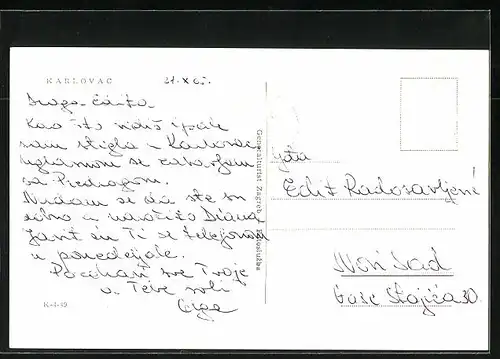 KARLOVAC
31. X 65.
Draga
Kao što vidiš ipak
sam stigla u Karlovac
uglavnom se zabavljam
sa Predragom.
Nadam se da ste svi
dobro a naročito
Javit ću Ti se telefonom
u ponedjeljak.
Pozdravi sve Tvoje
a Tebe voli
K-4-49
Generalturist Zagreb,
Edit Radosavljević
Novi Sad
Gose Stojića 30.